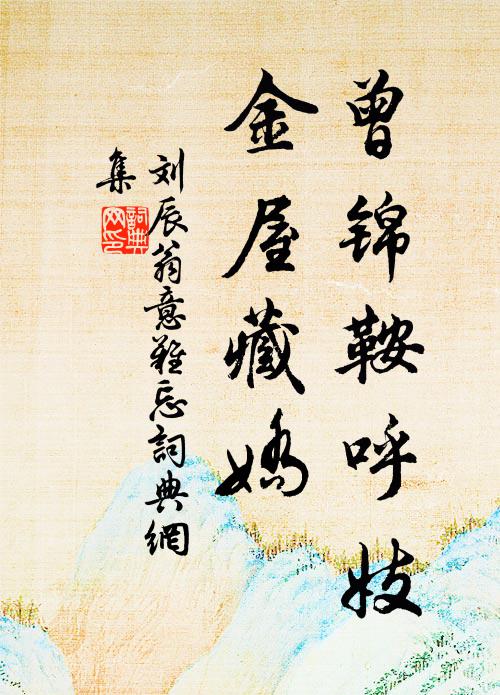 曾锦鞍呼妓
金屋藏娇
刘辰翁意难忘詞典網
集
詞典网印